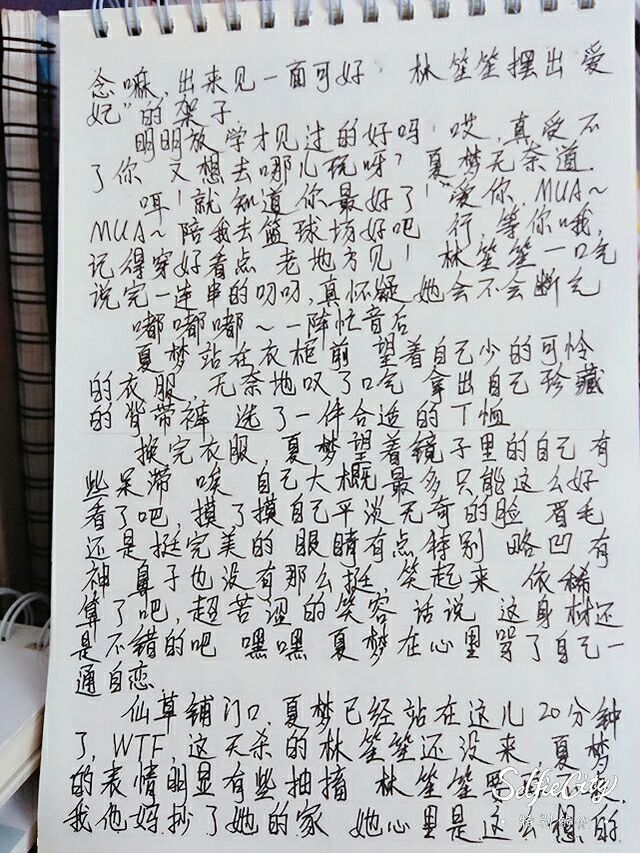 念嘛，出来见一面可好 林笙笙摆出爱
妃”的架子
明明放学才见过的好吗！哎，真受不
了你 又想去哪儿玩呀？ 夏梦无奈道.
呵！就知道你最好了！“爱你，MUA~
MUA~ 陪我去篮球场好吧 行，等你哦，
记得穿好看点 老地方见！ 林笙笙一口气
说完一连串的叨叨，真怀疑她会不会断气
嘟嘟嘟~ 一阵忙音后
夏梦站在衣柜前 望着自己少的可怜
的衣服，无奈地叹了口气 拿出自己珍藏
的背带裤 选了一件合适的T恤
换完衣服，夏梦望着镜子里的自己有
些呆滞 唉 自己大概最多只能这么好
看了吧，摸了摸自己平淡无奇的脸 眉毛
还是挺完美的 眼睛有点特别 略凹 有
神 鼻子也没有那么挺，笑起来 依稀
算了吧，超苦涩的笑容 话说 这身材还
是不错的吧 嘿嘿 夏梦在心里骂了自己一
通自恋.
仙草铺门口，夏梦已经站在这儿20分钟
了，WTF，这天杀的林笙笙还没来 夏梦
的表情明显有些抽搐 林笙笙要
我他妈抄了她的家 她心里是这么想的
SelfieCity